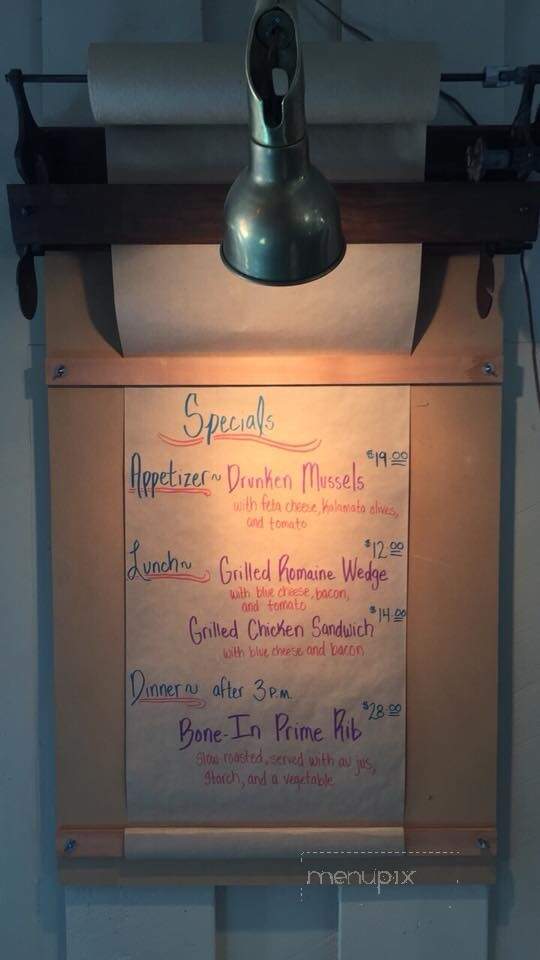 Specials
$19.00
Appetizer ~ Drunken Mussels
with feta cheese, Kalamata olives,
and tomato
$12.00
Lunch ~ Grilled Romaine Wedge
with blue cheese, bacon,
and tomato
$14.00
Grilled Chicken Sandwich
with blue cheese and bacon
Dinner ~ after 3 P.M.
$28.00
Bone-In Prime Rib
Slow roasted, served with au jus,
starch, and a vegetable
menupix